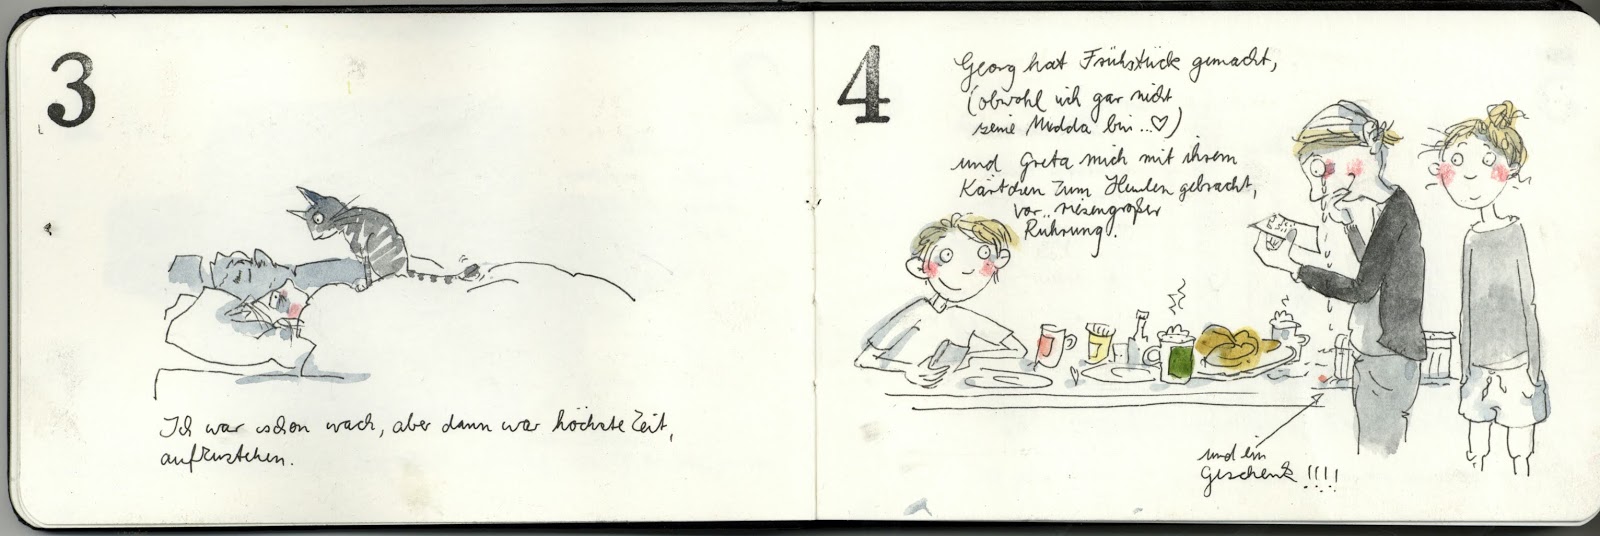 3
Ich war schon wach, aber dann war höchste Zeit,
aufzustehen.
4
Georg hat Frühstück gemacht,
(obwohl ich gar nicht
seine Mudda bin...♡)
und Greta mich mit ihrem
Kärtchen zum Heulen gebracht,
vor.. riesengroßer
Rührung.
und ein
Geschenk!!!!